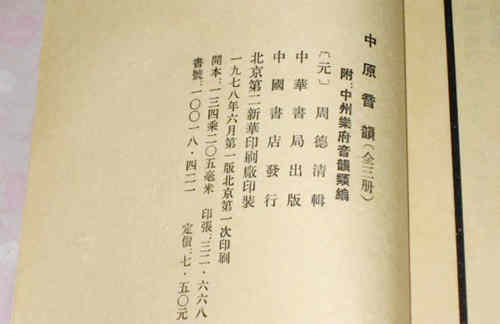 中原音韻（全三册）
附：中州樂府音韻類編
〔元〕周德清輯
中華書局出版
中國書店發行
北京第二新華印刷廠印装
一九七八年六月第一版北京第一次印刷
開本：一三四乘二〇五毫米 印張：三二·六六八
書號：一〇〇一八·四二一 定價：七·五〇元